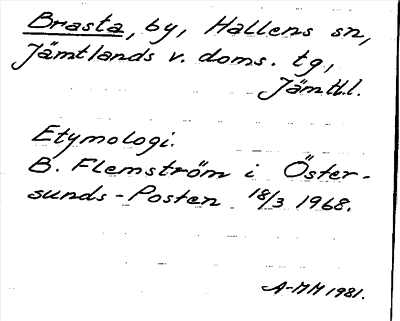 Brasta, by, Hallens sn,
Jämtlands v. doms. tg,
Jämtl.l.
Etymologi.
B. Flemström i Öster-
sunds-Posten 18/3 1968.
A-MM 1981.